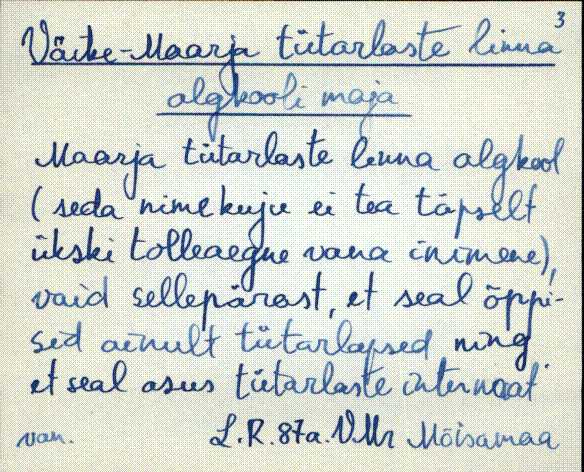 3
Väike-Maarja tütarlaste linna
algkooli maja
Maarja tütarlaste linna algkool
(seda nimekuju ei tea täpselt
ükski tolleaegne vana inimene),
vaid sellepärast, et seal õppi-
sid ainult tütarlapsed ning
et seal asus tütarlaste internaat
van. L.R. 87a. VMr Mõisamaa